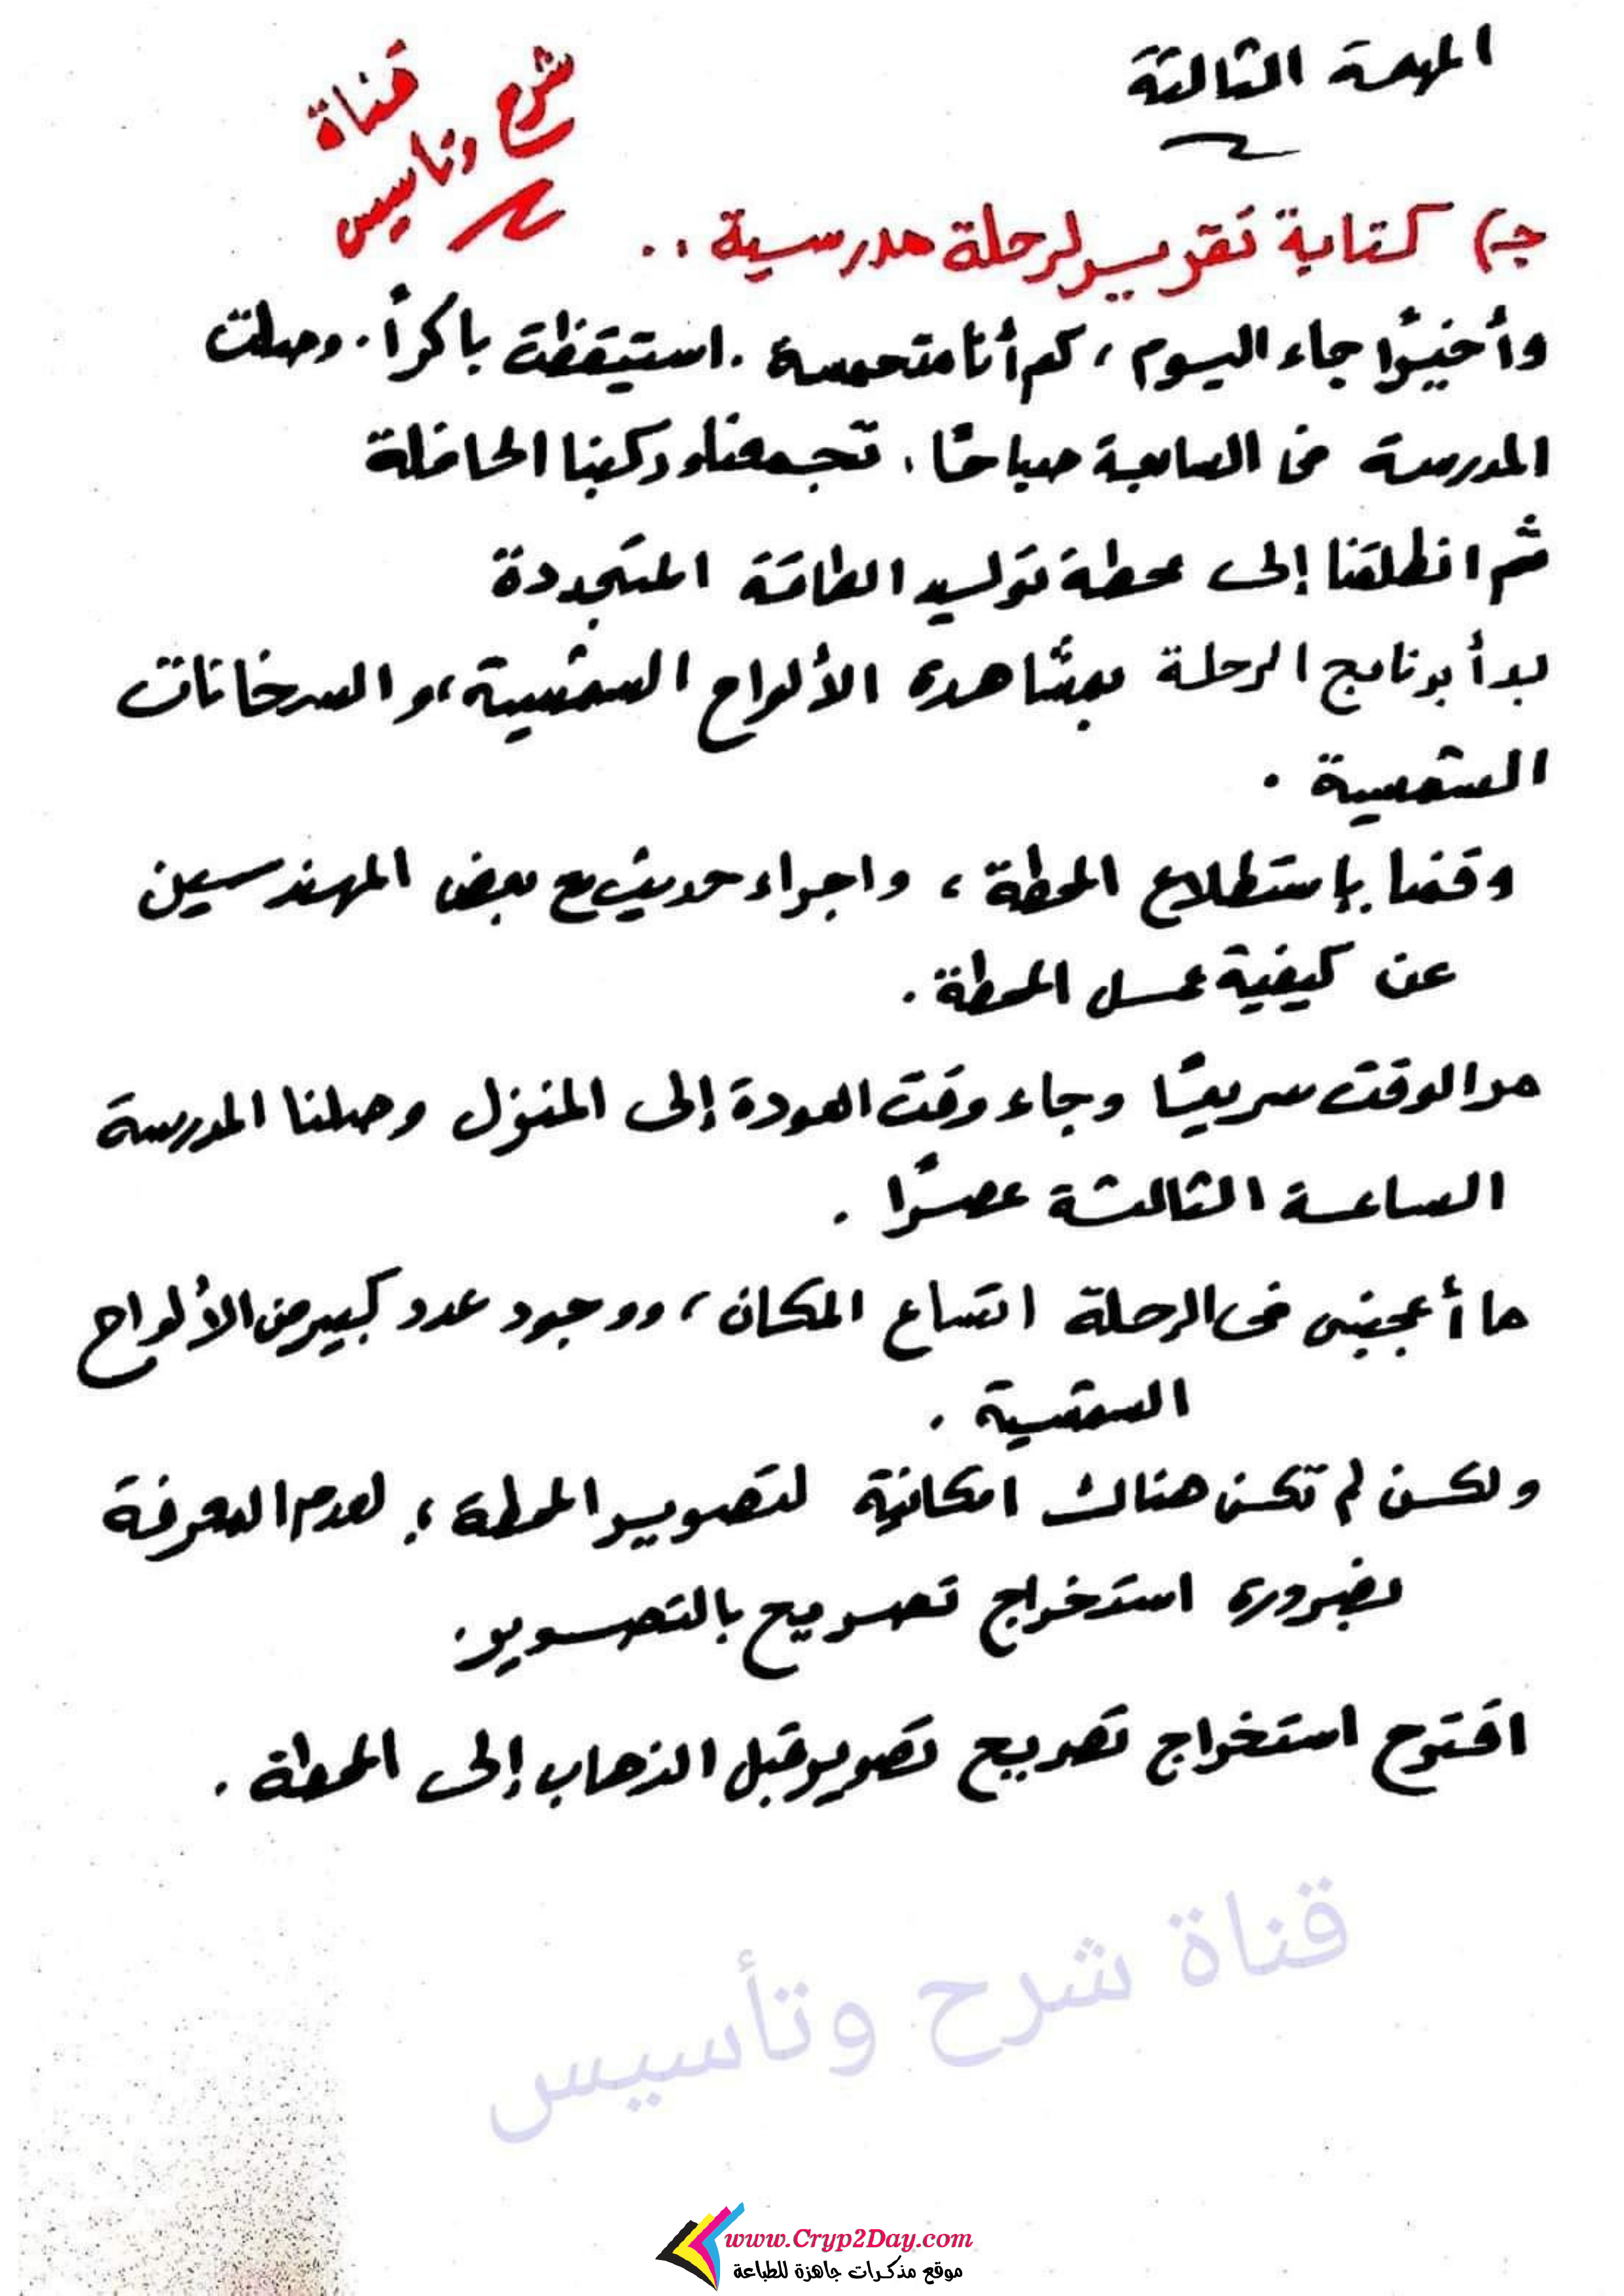 المهمة الثالثة
قناة
شرح
وتاسيس
جـ) كتابة تقرير لرحلة مدرسية ..
وأخيرًا جاء اليوم ، كم أنا متحمسة . استيقظت باكرًا . وصلت
المدرسة فى السابعة صباحًا ، تجمعنا وركبنا الحافلة
ثم انطلقنا إلى محطة توليد الطاقة المتجددة
بدأ برنامج الرحلة بمشاهدة الألواح الشمسية ، والسخانات
الشمسية .
وقمنا بإستطلاع المحطة ، واجراء حديث مع بعض المهندسين
عن كيفية عمل المحطة .
مر الوقت سريعًا وجاء وقت العودة إلى المنزل وصلنا المدرسة
الساعة الثالثة عصرًا .
ما أعجبنى فى الرحلة اتساع المكان ، ووجود عدد كبير من الألواح
الشمسية .
ولكن لم تكن هناك امكانية لتصوير المحطة ؛ لعدم المعرفة
بضرورة استخراج تصريح بالتصوير .
اقترح استخراج تصريح تصوير قبل الذهاب إلى المحطة .
قناة شرح وتأسيس
www.Cryp2Day.com
موقع مذكرات جاهزة للطباعة